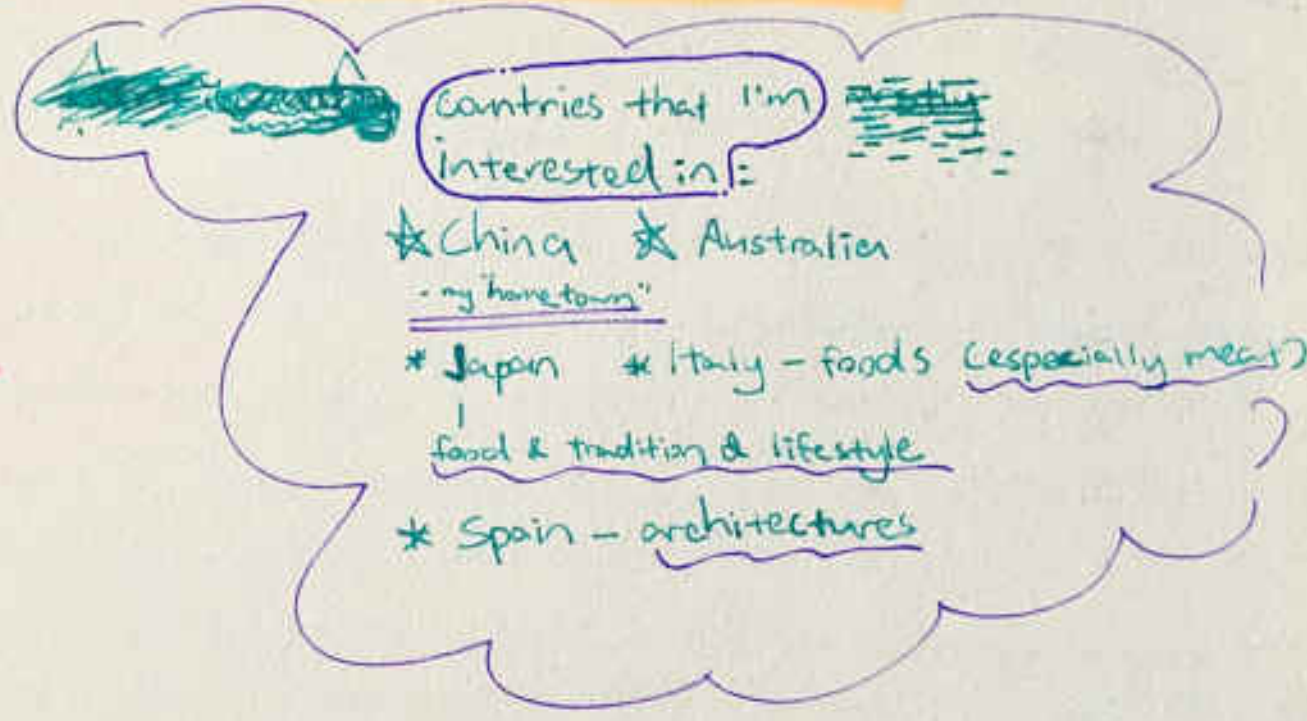 countries that I'm
interested in:
☆China ☆ Australia
- my "hometown"
* Japan * Italy - foods (especially meat)
food & tradition & lifestyle
* Spain - architectures